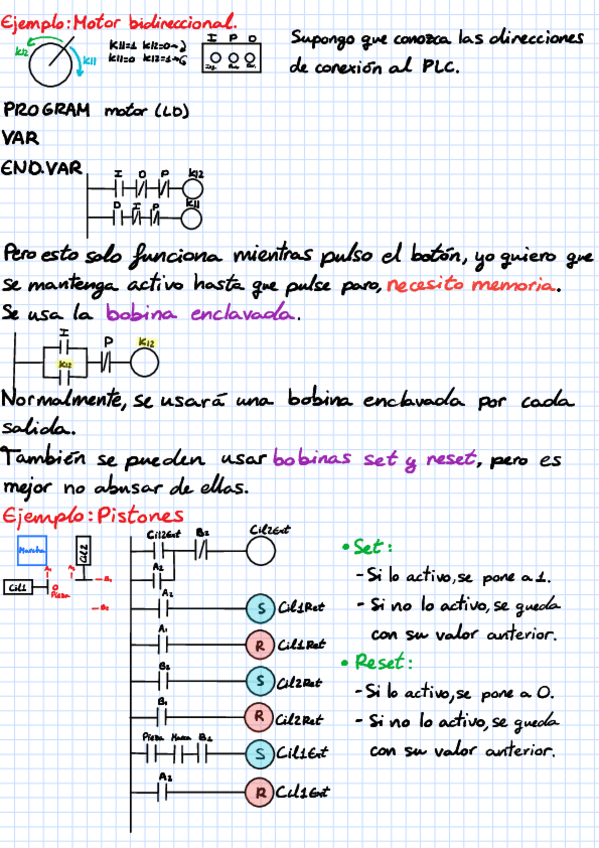 Ejemplo: Motor bidireccional.
K12
K11
K11=1 K12=0→
K11=0 K12=1→
I P D
Supongo que conozca las direcciones
de conexión al PLC.
PROGRAM motor (LD)
VAR
END.VAR
I D P K12
D I P K11
Pero esto solo funciona mientras pulso el botón, yo quiero que
se mantenga activo hasta que pulse paro, necesito memoria.
Se usa la bobina enclavada.
I P K12
K12
Normalmente, se usará una bobina enclavada por cada
salida.
También se pueden usar bobinas set y reset, pero es
mejor no abusar de ellas.
Ejemplo: Pistones
Marcha
Cil2
Cil1
Pieza
Cil2Ext B2 Cil2Ext
A2
A2 S Cil1Ret
A1 R Cil1Ret
B2 S Cil2Ret
B1 R Cil2Ret
Pieza B1 S Cil1Ext
A2 R Cil1Ext
• Set:
- Si lo activo, se pone a 1.
- Si no lo activo, se queda
con su valor anterior.
• Reset:
- Si lo activo, se pone a 0.
- Si no lo activo, se queda
con su valor anterior.